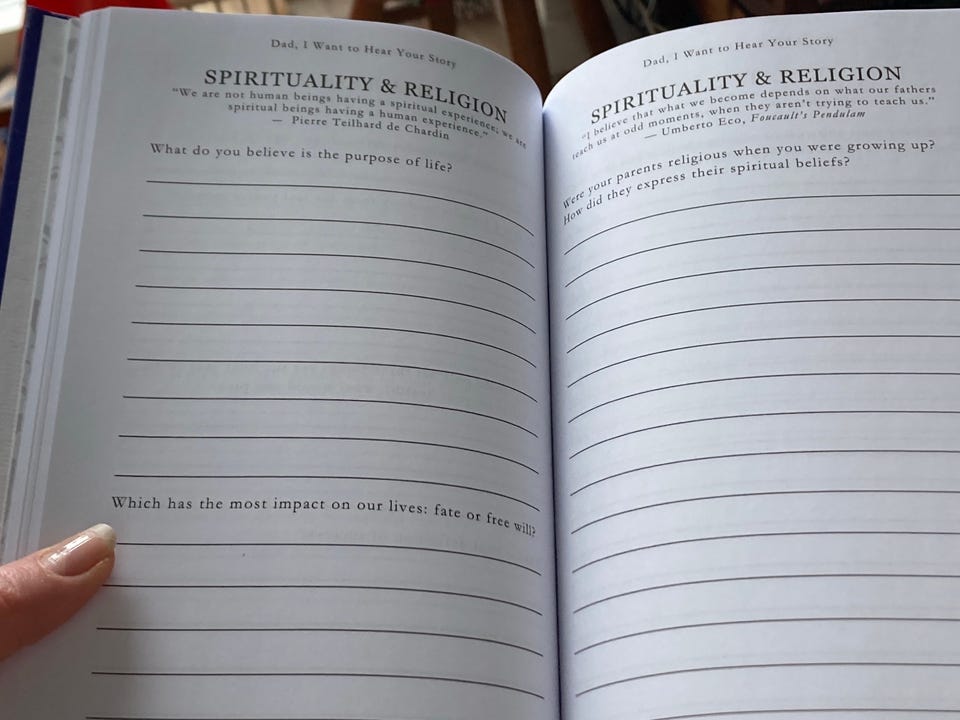 Dad, I Want to Hear Your Story
SPIRITUALITY & RELIGION
"We are not human beings having a spiritual experience; we are
spiritual beings having a human experience."
— Pierre Teilhard de Chardin
What do you believe is the purpose of life?
Which has the most impact on our lives: fate or free will?
Dad, I Want to Hear Your Story
SPIRITUALITY & RELIGION
"I believe that what we become depends on what our fathers
teach us at odd moments, when they aren't trying to teach us."
— Umberto Eco, Foucault's Pendulam
Were your parents religious when you were growing up?
How did they express their spiritual beliefs?